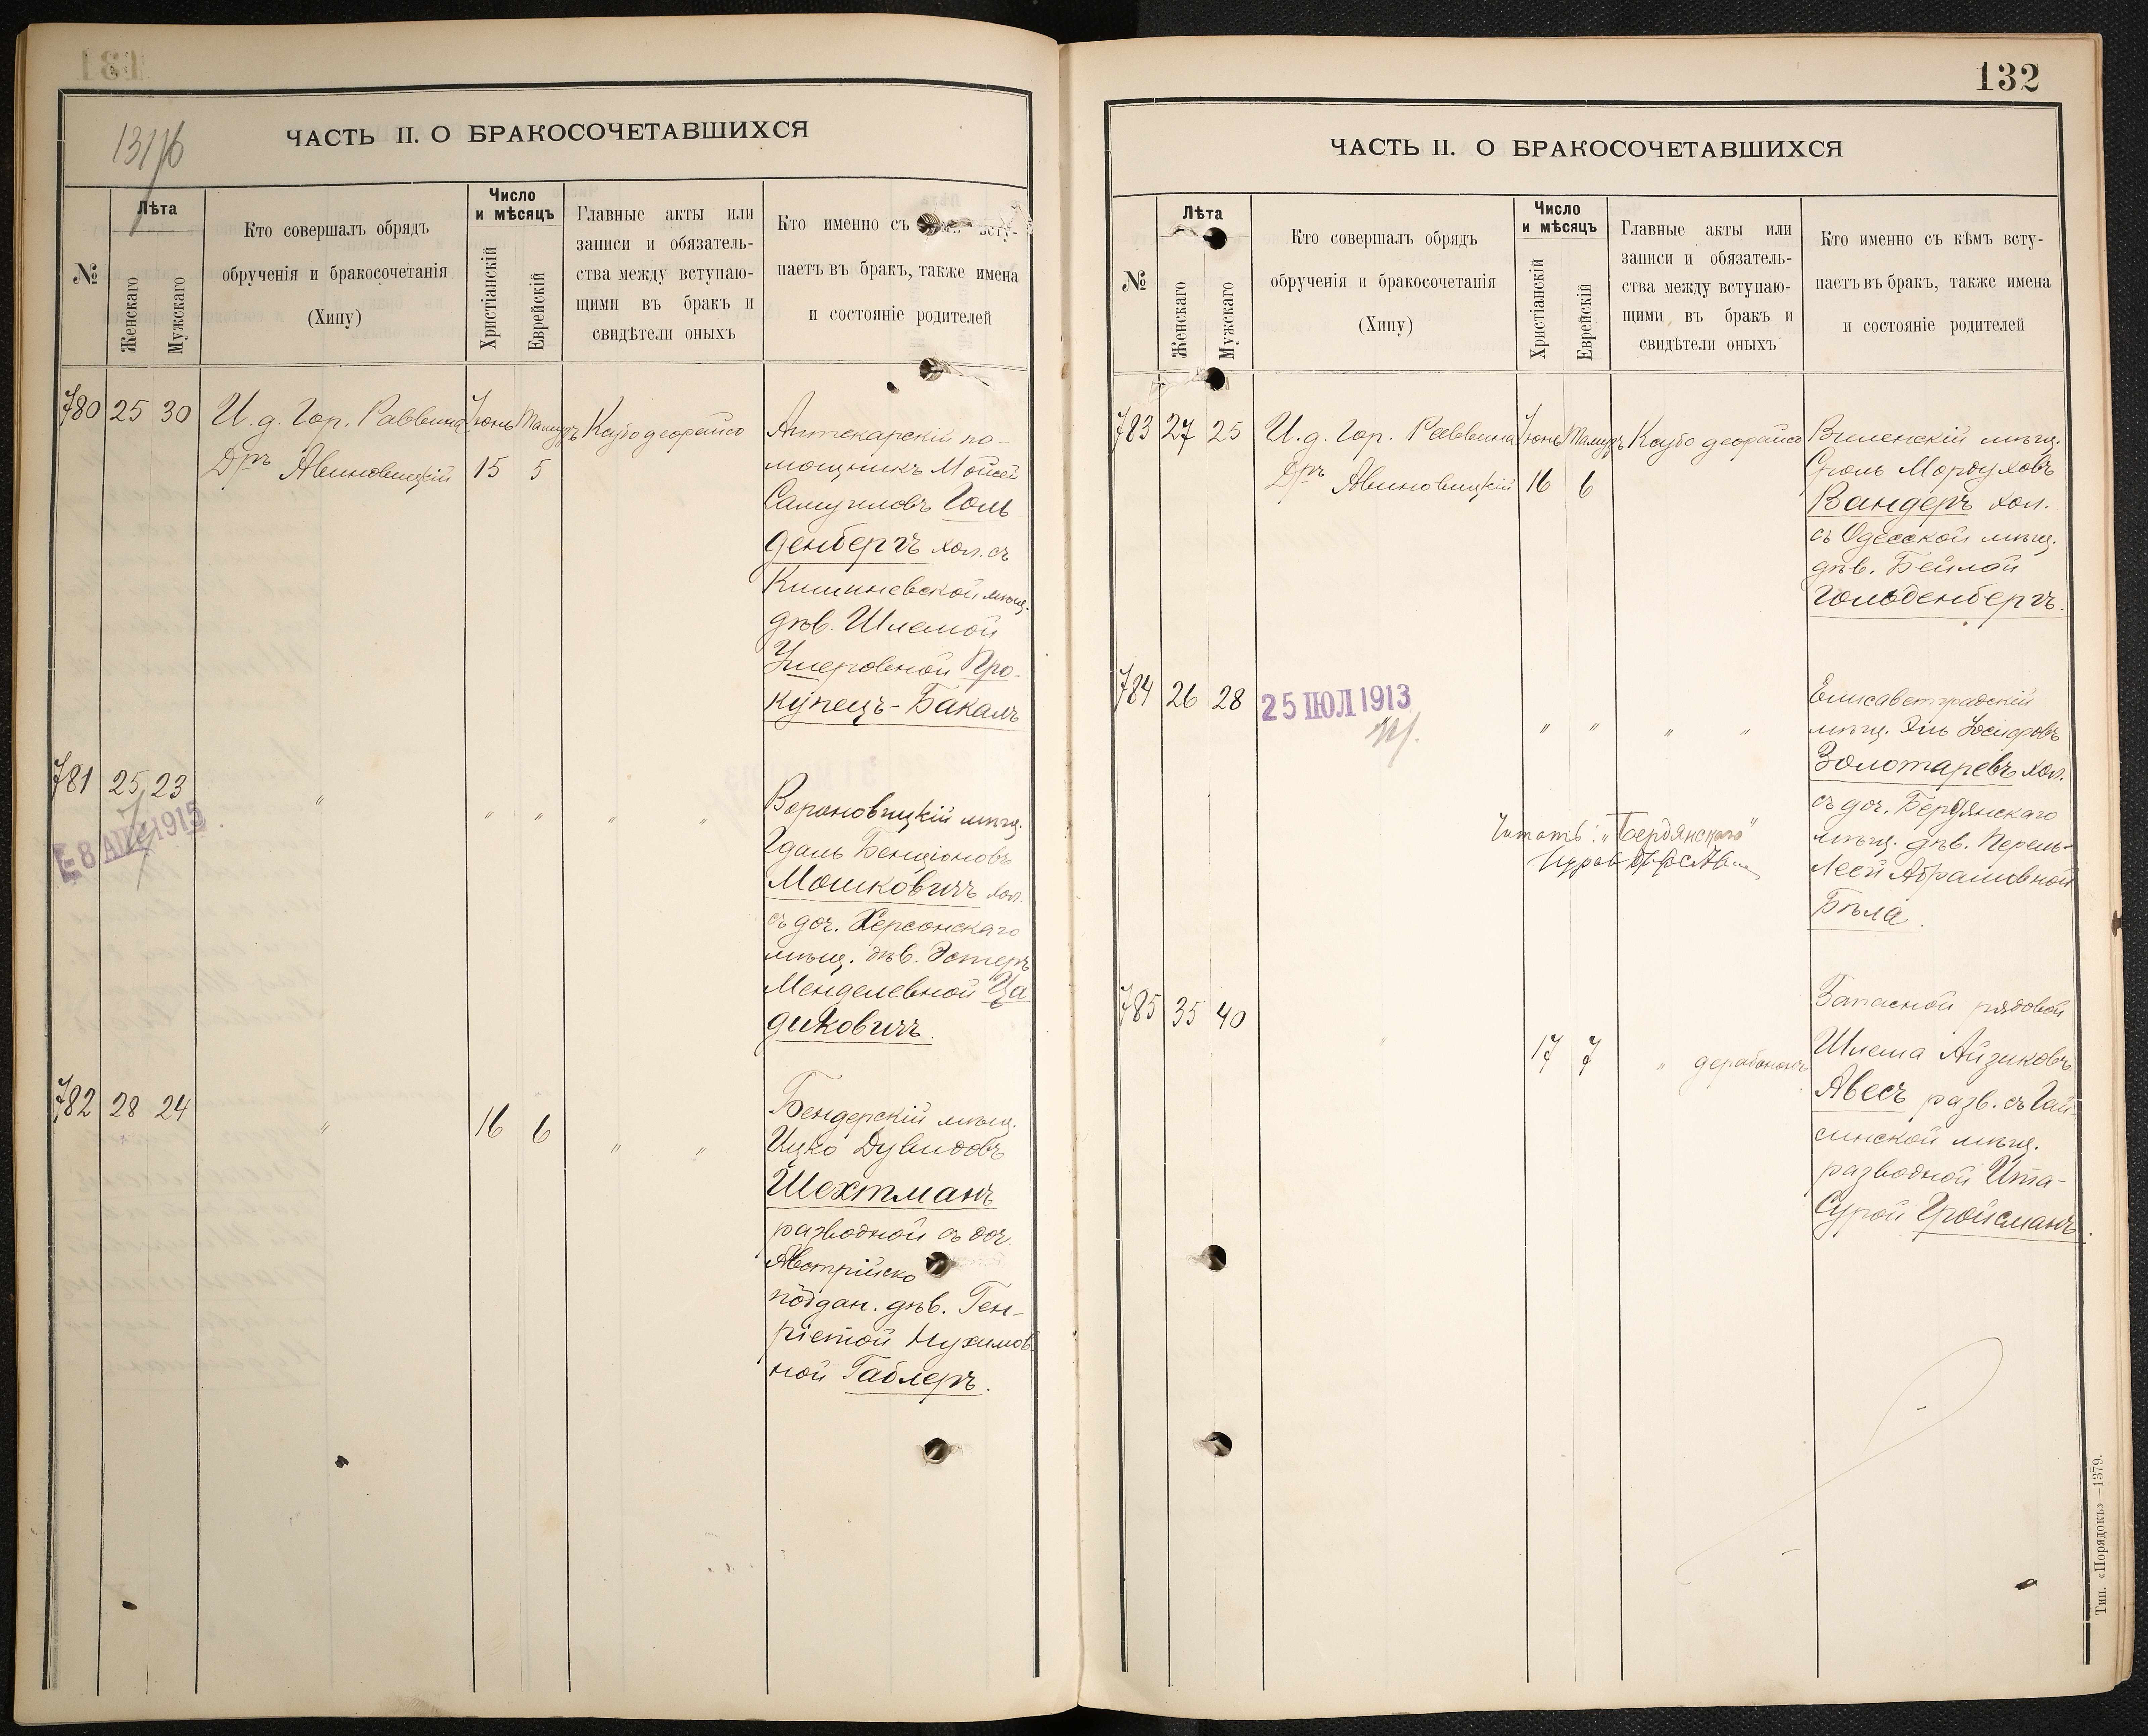 131/б
ЧАСТЬ II. О БРАКОСОЧЕТАВШИХСЯ
№
Лѣта
Женскаго
Мужскаго
Кто совершалъ обрядъ
обрученія и бракосочетанія
(Хипу)
Число
и мѣсяцъ
Христіанскій
Еврейскій
Главные акты или
записи и обязатель-
ства между вступаю-
щими въ бракъ и
свидѣтели оныхъ
Кто именно съ всту-
паетъ въ бракъ, также имена
и состояніе родителей
780 25 30 И. д. Гор. Раввина Іюнь Тамузъ Ксубо деорайсо
Дръ Авиновицкій 15 5
Аптекарскій по-
мощникъ Мойсей
Самуиловъ Голь
денбергъ хол. съ
Кишиневской мѣщ.
дѣв. Шлемой
Ушеровной Про-
купецъ-Бакалъ
781 25 23 " " " " "
8 АПР 1915
Вороновицкій мѣщ.
Гдаль Бенціоновъ
Мошковичъ хол.
съ доч. Херсонскаго
мѣщ. дѣв. Эстеръ
Менделевной Ца
диковичъ.
782 28 24 " 16 6 " "
Бендерскій мѣщ.
Ицко Дувидовъ
Шехтманъ
разводной съ доч.
Австрійско
поддан. дѣв. Ген-
ріетой Нухимов-
ной Габлеръ.
132
ЧАСТЬ II. О БРАКОСОЧЕТАВШИХСЯ
№
Лѣта
Женскаго
Мужскаго
Кто совершалъ обрядъ
обрученія и бракосочетанія
(Хипу)
Число
и мѣсяцъ
Христіанскій
Еврейскій
Главные акты или
записи и обязатель-
ства между вступаю-
щими въ бракъ и
свидѣтели оныхъ
Кто именно съ кѣмъ всту-
паетъ въ бракъ, также имена
и состояніе родителей
783 27 25 И. д. Гор. Раввина Іюнь Тамузъ Ксубо деорайсо
Дръ Авиновицкій 16 6
Виленскій мѣщ.
Сроль Мордуховъ
Вандеръ хол.
съ Одесской мѣщ.
дѣв. Бейлой
Гольденбергъ.
784 26 28 " " " "
25 ІЮЛ 1913
Елисаветградскій
мѣщ. Эль Іосифовъ
Золотаревъ хол.
съ доч. Бердянскаго
мѣщ. дѣв. Перель-
Леей Абрамовной
Бѣла.
Читать: "Бердянскаго"
785 35 40 17 7 " дерабононъ
Запасной рядовой
Шлема Айзиковъ
Авесъ разв. съ Гай-
синской мѣщ.
разводной Ита-
Сурой Гройсманъ.
Тип. «Порядокъ»—1379.